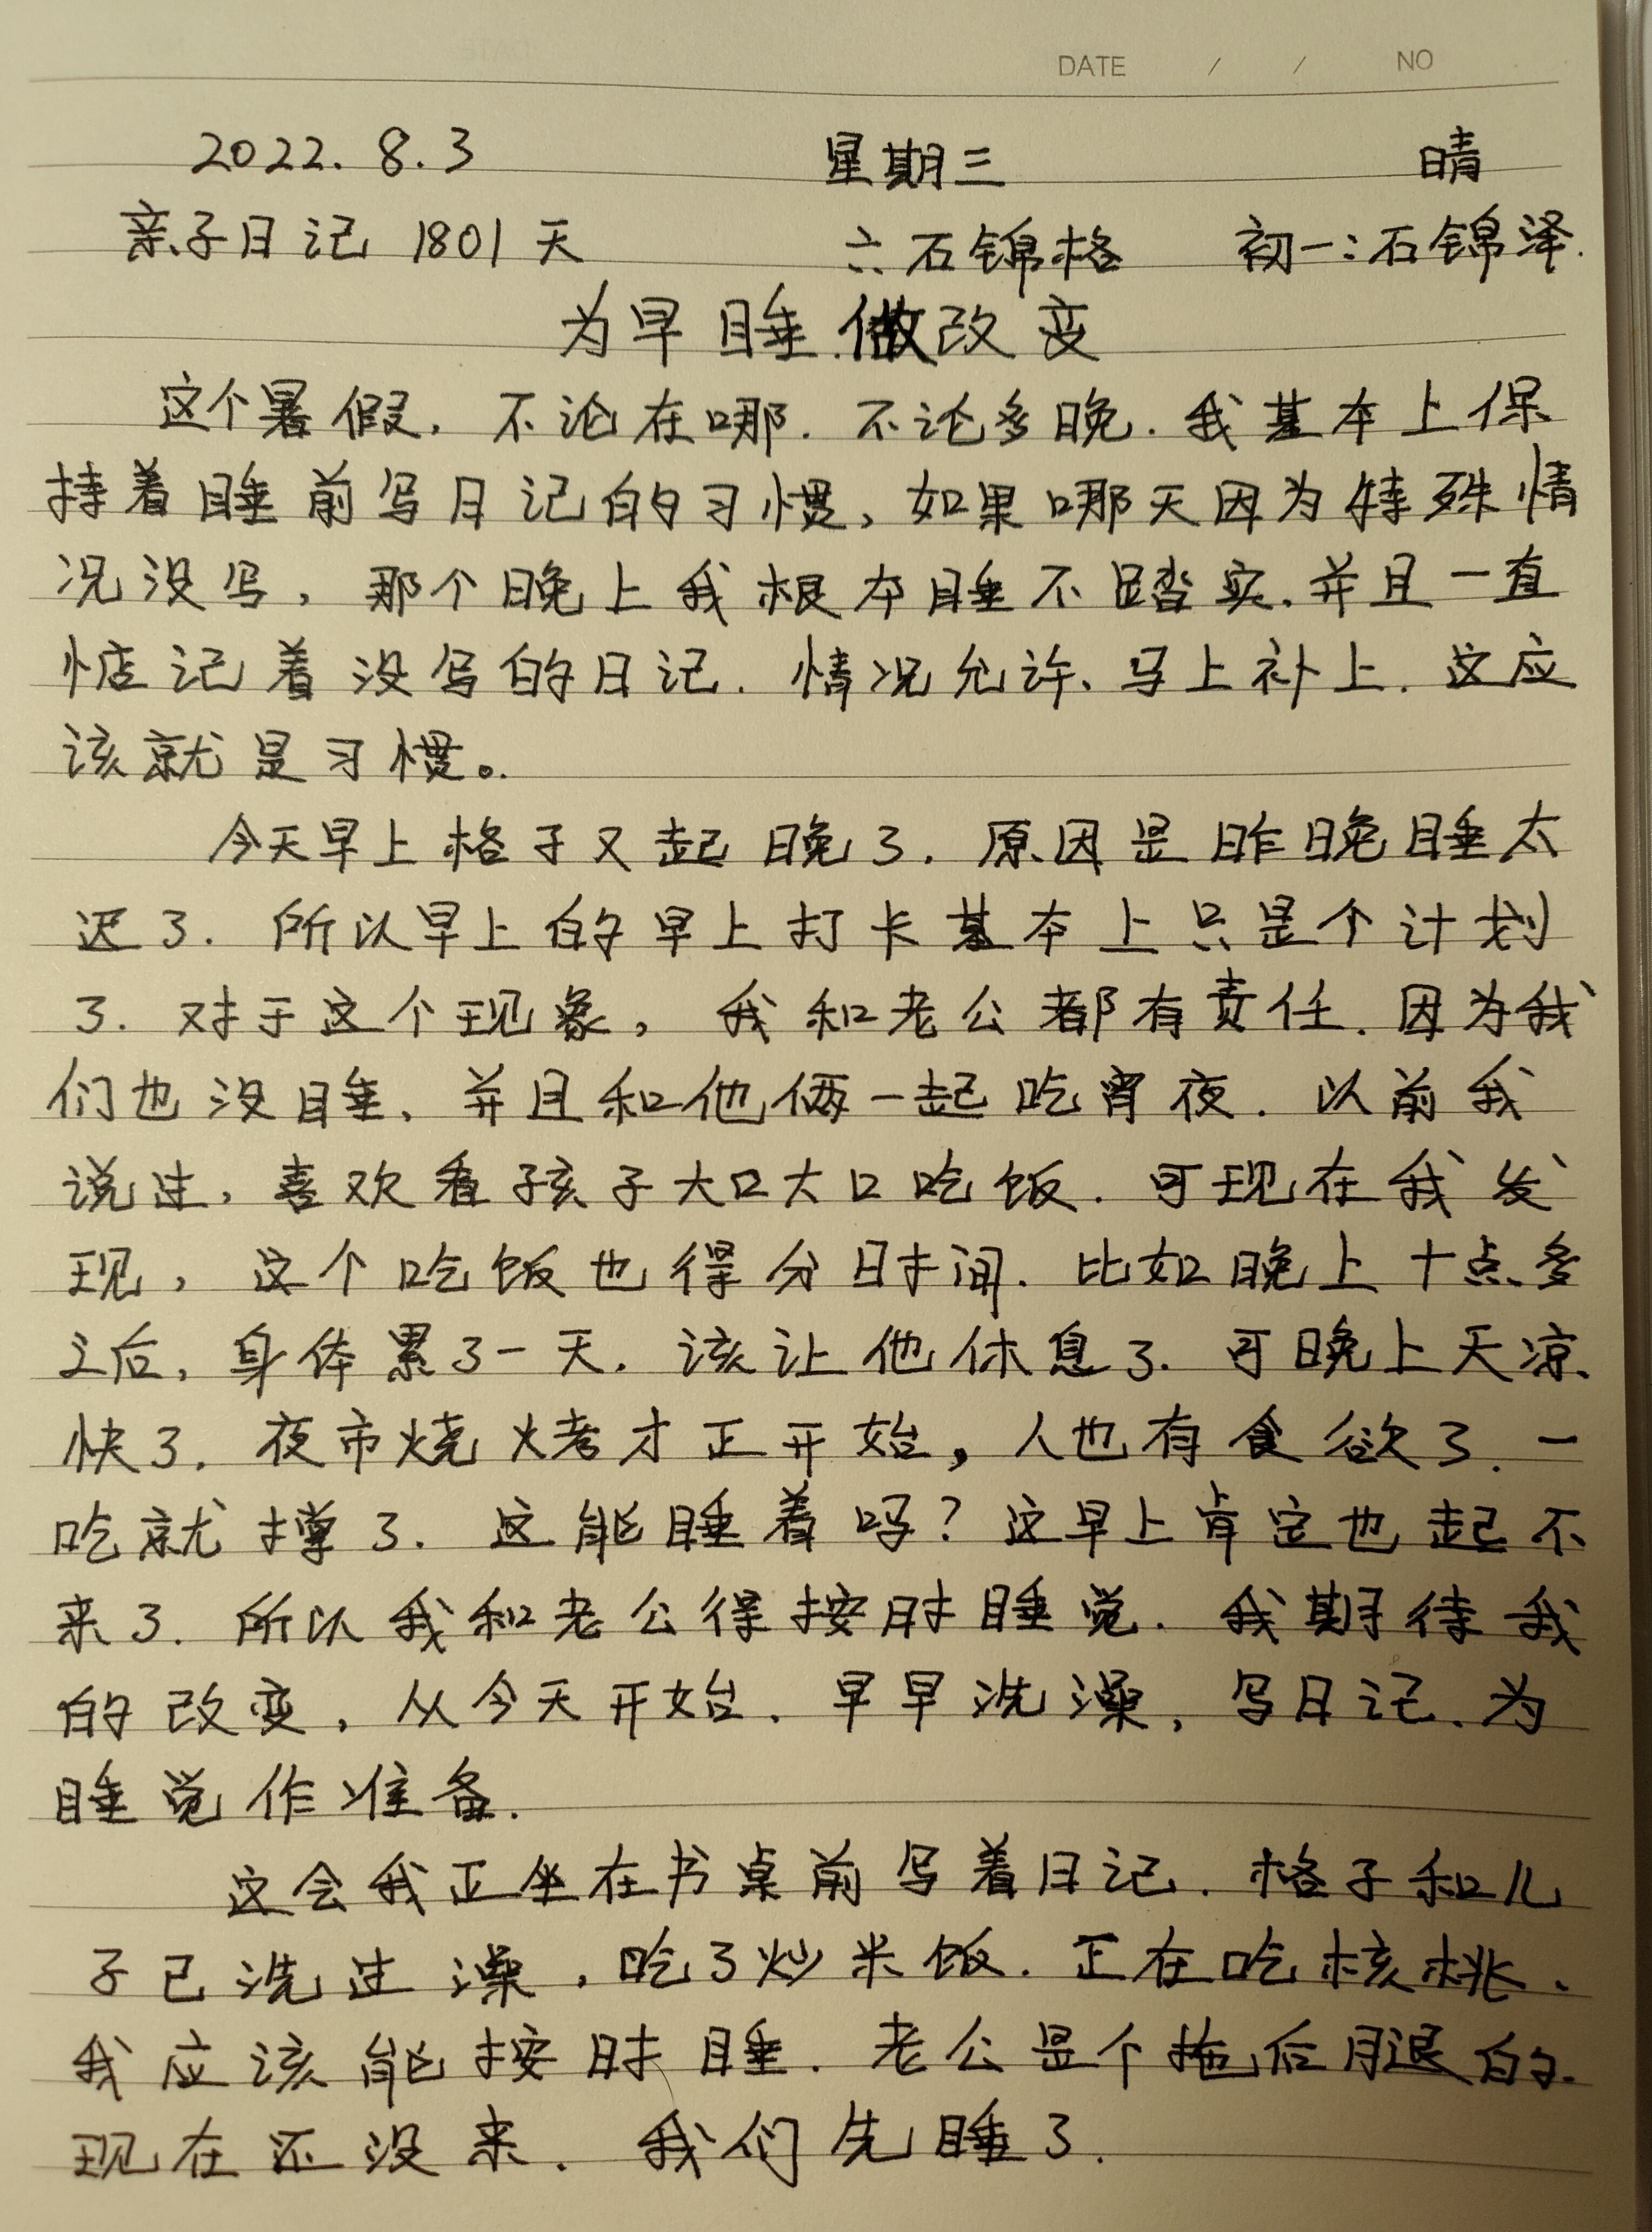 DATE / / NO
2022.8.3 星期三 晴
亲子日记 1801天 六石锦格 初一:石锦泽.
为早睡做改变
这个暑假,不论在哪.不论多晚.我基本上保
持着睡前写日记的习惯,如果哪天因为特殊情
况没写,那个晚上我根本睡不踏实.并且一直
惦记着没写的日记.情况允许、马上补上.这应
该就是习惯。
今天早上格子又起晚了.原因是昨晚睡太
迟了.所以早上的早上打卡基本上只是个计划
了.对于这个现象,我和老公都有责任.因为我
们也没睡、并且和他俩一起吃宵夜.以前我
说过,喜欢看孩子大口大口吃饭.可现在我发
现,这个吃饭也得分时间.比如晚上十点多
之后,身体累了一天.该让他休息了.可晚上天凉
快了.夜市烧烤才正开始,人也有食欲了.一
吃就撑了.这能睡着吗?这早上肯定也起不
来了.所以我和老公得按时睡觉.我期待我
的改变,从今天开始.早早洗澡,写日记.为
睡觉作准备.
这会我正坐在书桌前写着日记.格子和儿
子已洗过澡,吃了炒米饭.正在吃核桃、
我应该能按时睡.老公是个拖后腿的.
现在还没来.我们先睡了.